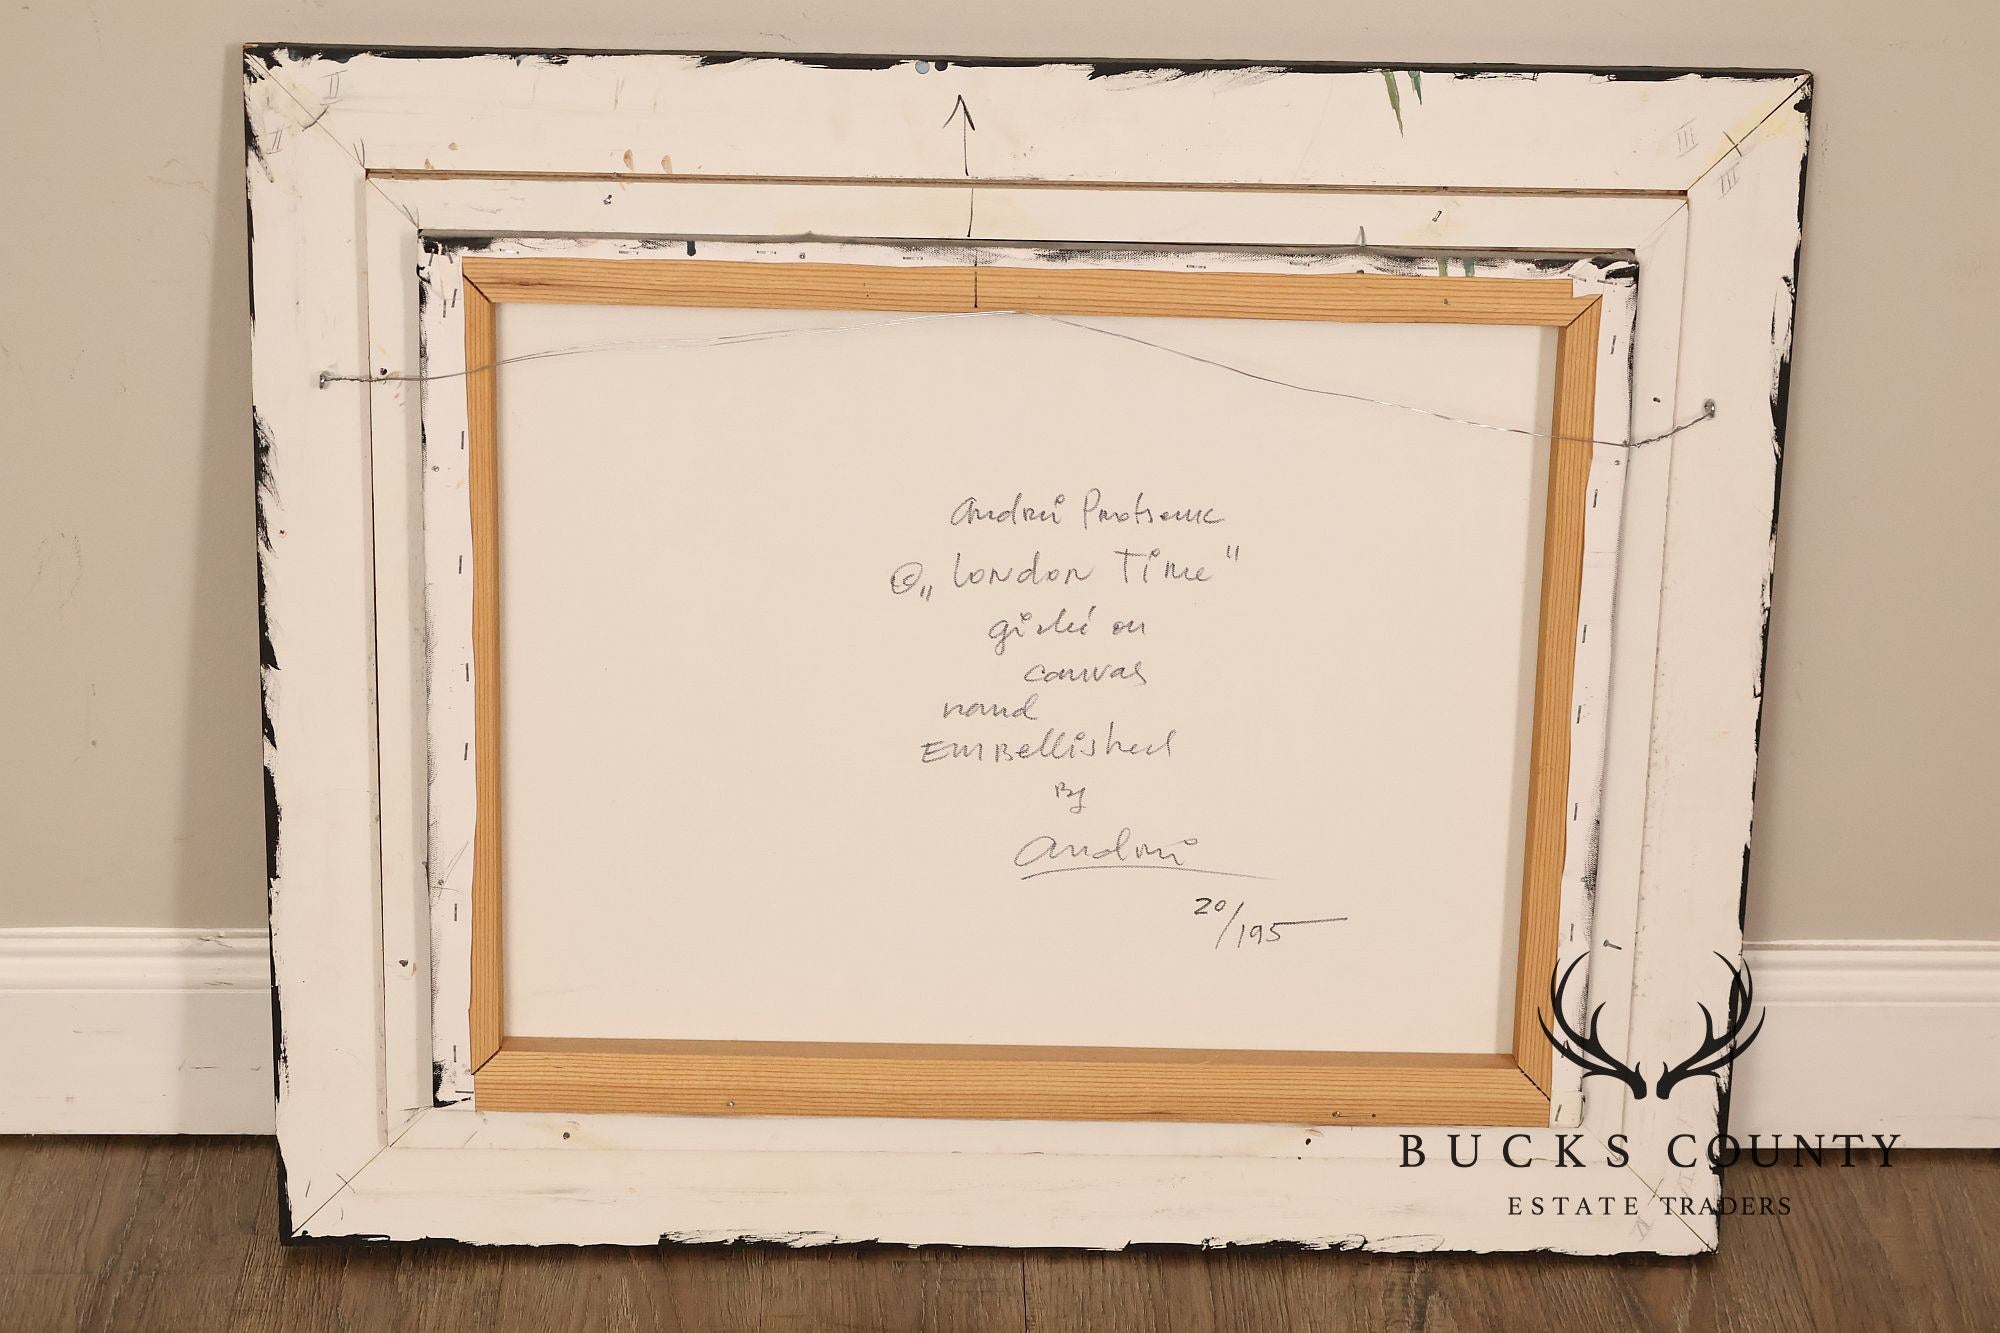 Andrii Protsenk
© „London Time"
gicleé on
canvas
hand
EmBellished
By
Andrii
20/195
II
II
III
III
IV
BUCKS COUNTY
ESTATE TRADERS